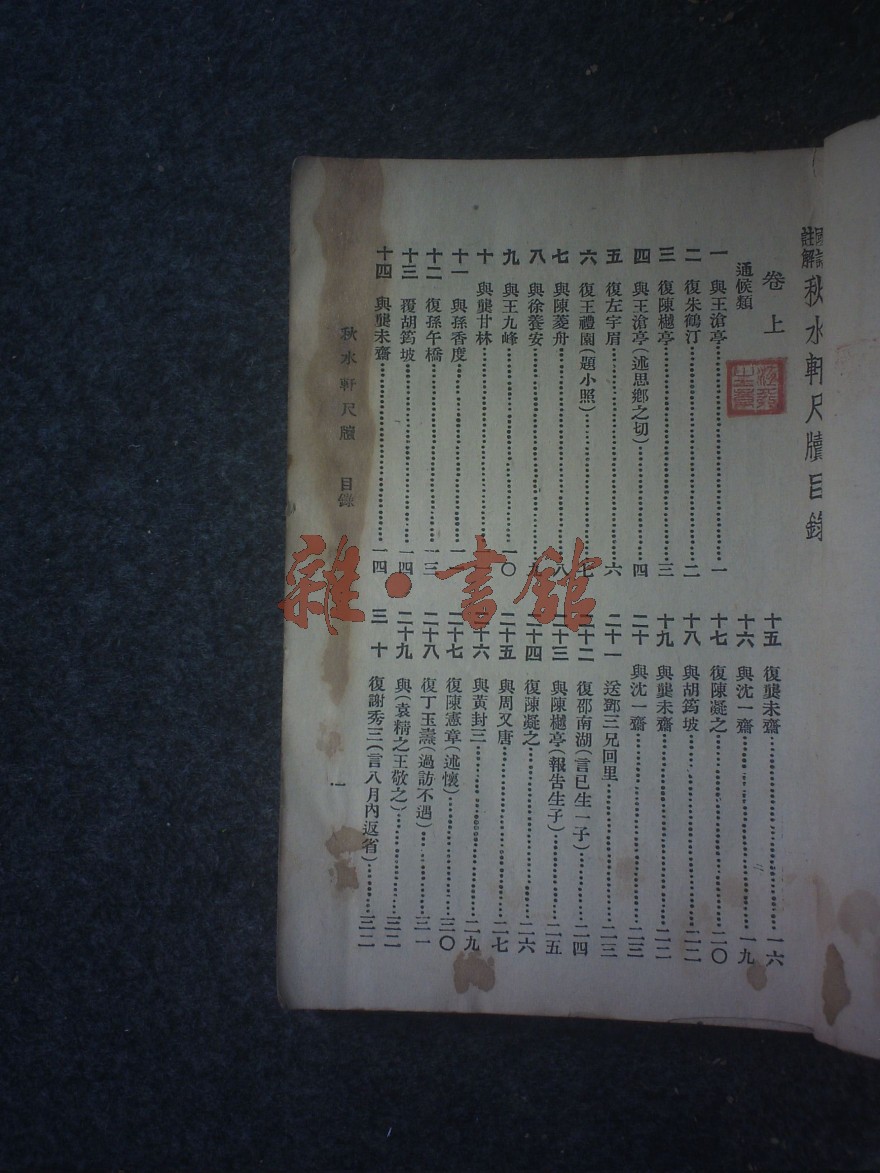 國語註解 秋水軒尺牘目錄
卷上
通候類
一 與王滄亭……一
二 復朱鶴汀……二
三 復陳樾亭……三
四 與王滄亭(述思鄉之切)……四
五 復左字眉……六
六 復王禮園(題小照)……七
七 與陳菱舟……八
八 與徐養安……九
九 與王九峰……一〇
十 與龔甘林……
十一 與孫香度……一一
十二 復孫午橋……一三
十三 覆胡筠坡……一四
十四 與龔未齋……一四
十五 復龔未齋……一六
十六 與沈一齋……一九
十七 復陳凝之……二〇
十八 與胡筠坡……二二
十九 與龔未齋……二二
二十 與沈一齋……二三
二十一 送鄧三兄回里……二三
二十二 復邵南湖(言已生一子)……二四
二十三 與陳樾亭(報告生子)……二五
二十四 復陳凝之……二六
二十五 與周又唐……二七
二十六 與黃封三……二九
二十七 復陳憲章(述懷)……三〇
二十八 復丁玉(過訪不遇)……三一
二十九 與(袁精之王敬之)……三二
三十 復謝秀三(言八月內返省)……三二
秋水軒尺牘 目錄
一
雜·書館